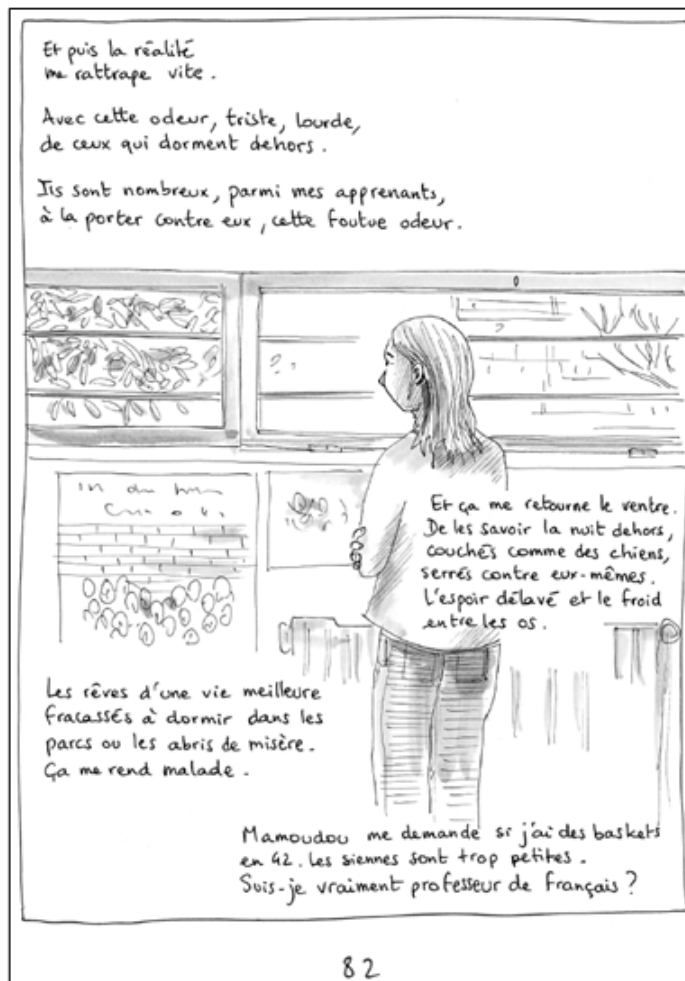 Et puis la réalité
me rattrape vite.
Avec cette odeur, triste, lourde,
de ceux qui dorment dehors.
Ils sont nombreux, parmi mes apprenants,
à la porter contre eux, cette foutue odeur.
Et ça me retourne le ventre.
De les savoir la nuit dehors,
couchés comme des chiens,
serrés contre eux-mêmes.
L'espoir délavé et le froid
entre les os.
Les rêves d'une vie meilleure
fracassés à dormir dans les
parcs ou les abris de misère.
Ça me rend malade.
Mamoudou me demande si j'ai des baskets
en 42. Les siennes sont trop petites.
Suis-je vraiment professeur de français ?
82